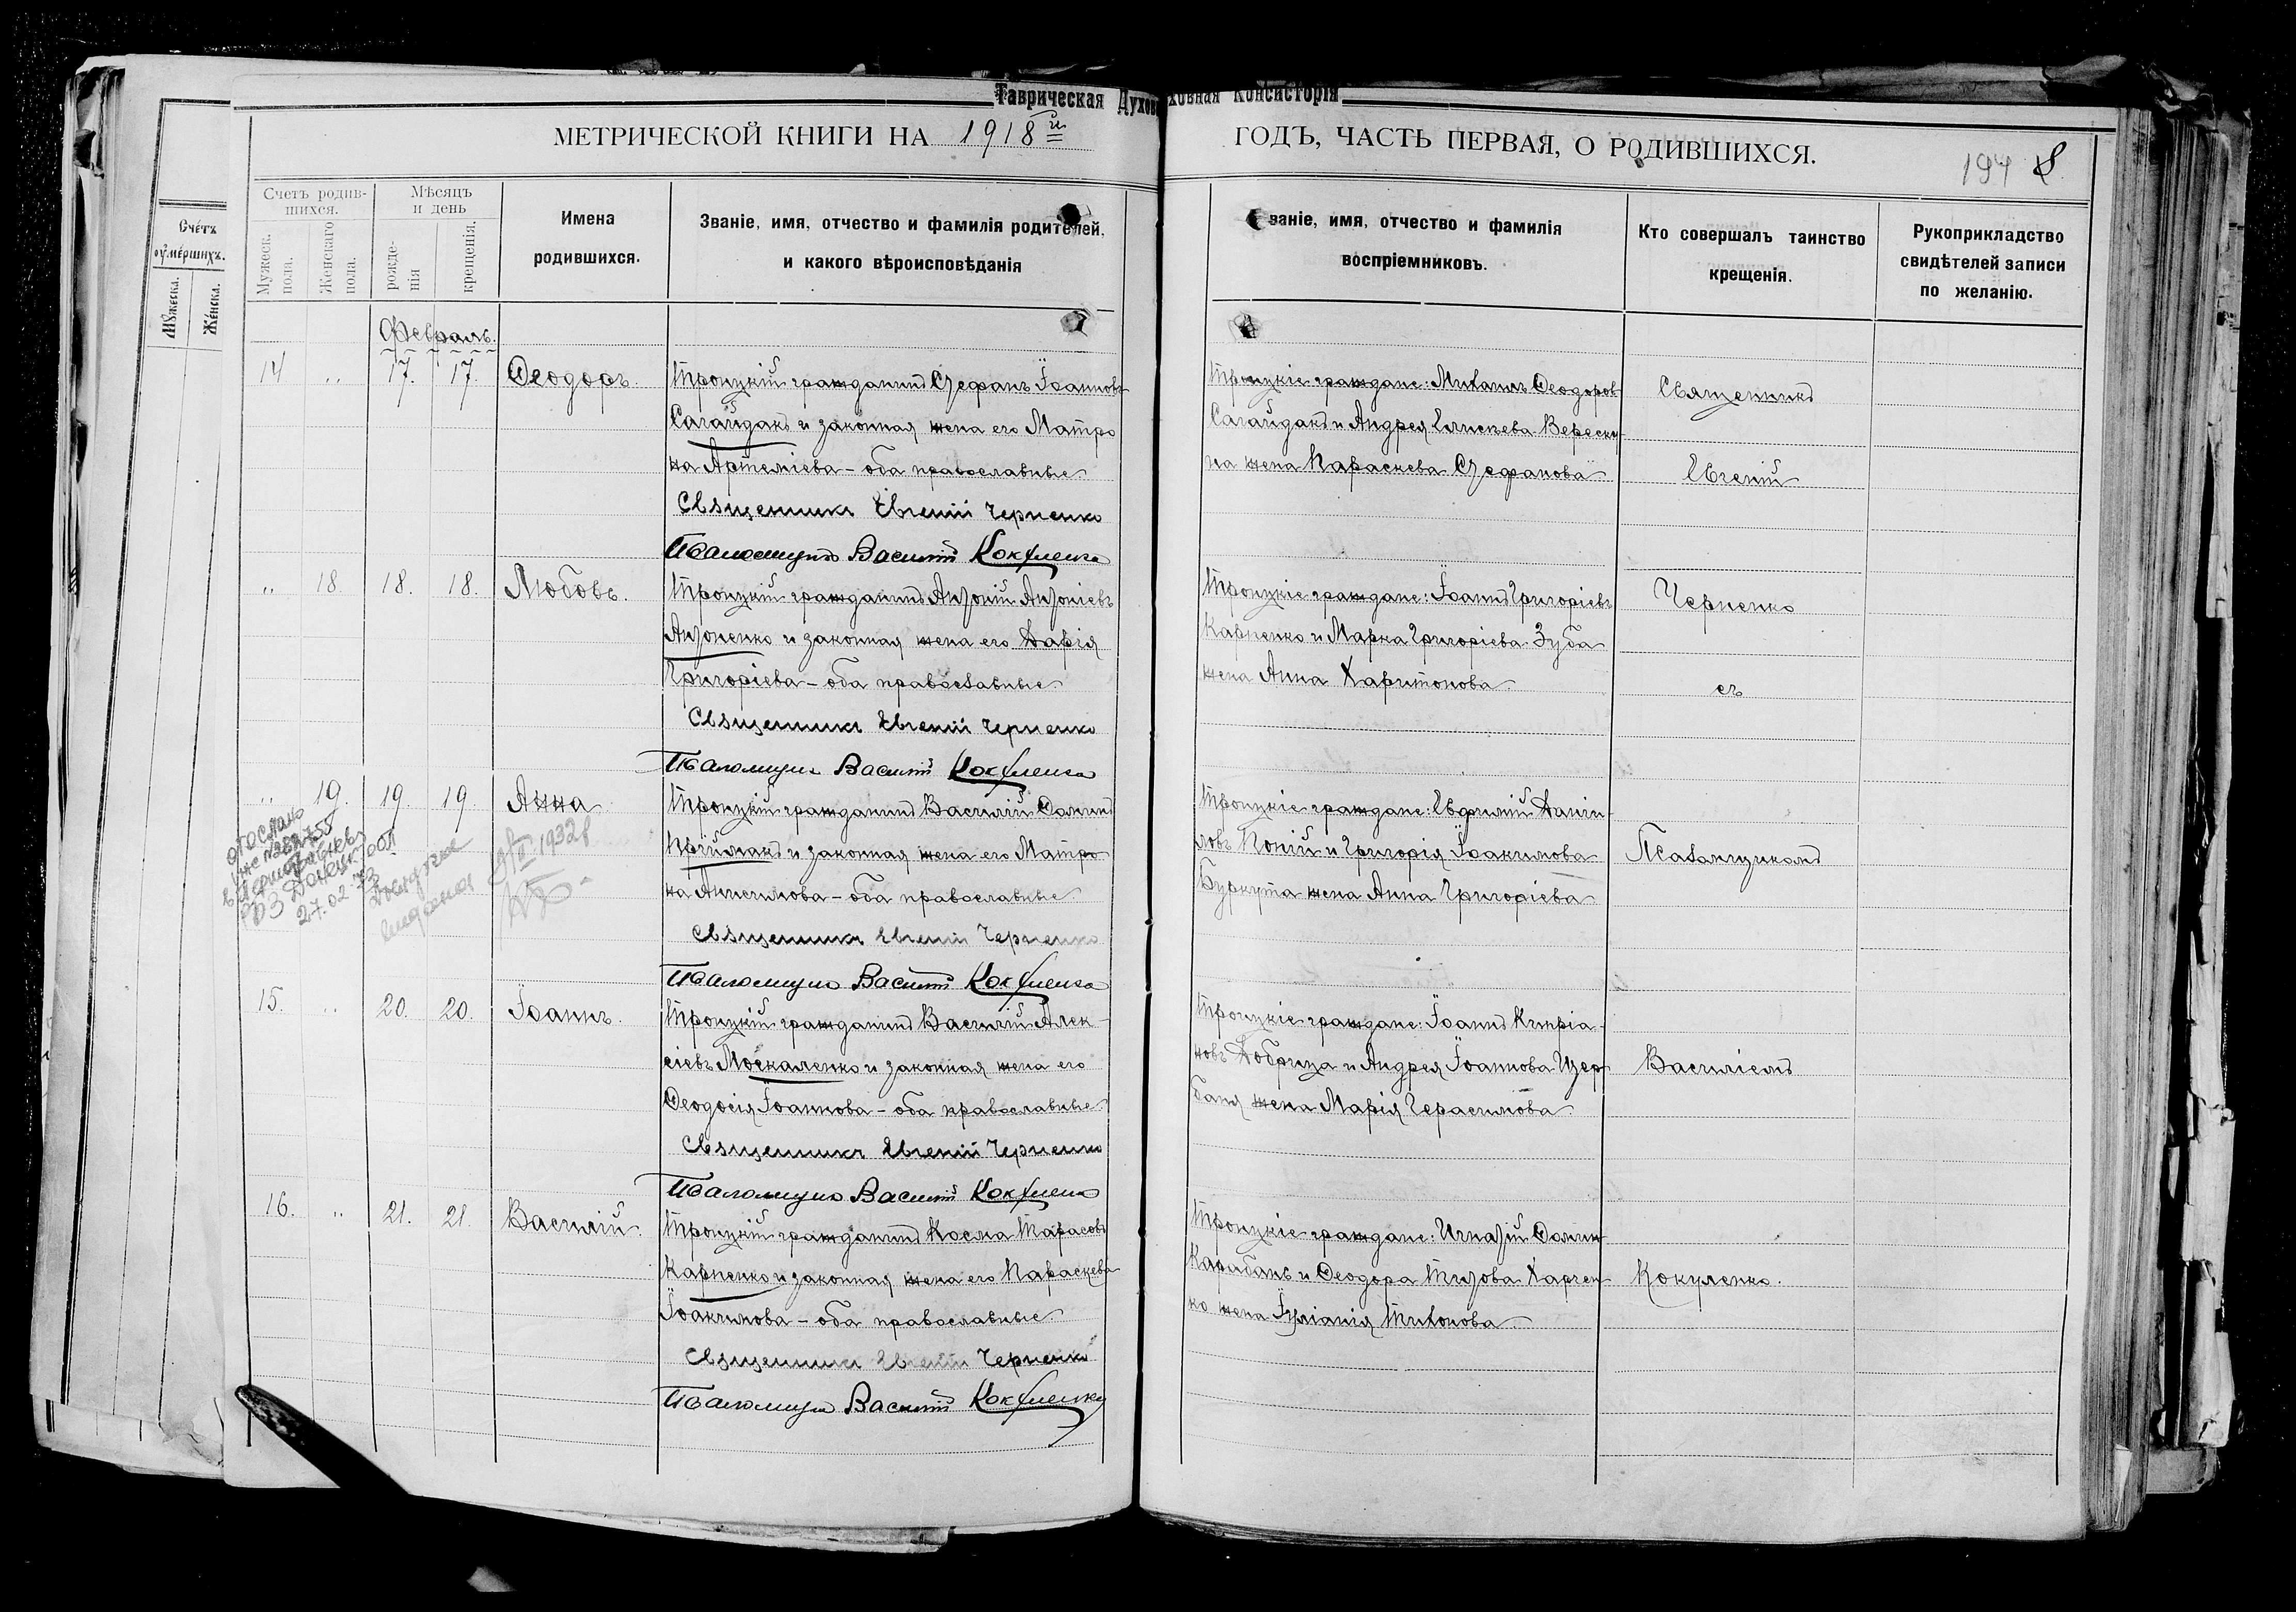 Таврическая Духовная Консисторія
МЕТРИЧЕСКОЙ КНИГИ НА 1918й
ГОДЪ, ЧАСТЬ ПЕРВАЯ, О РОДИВШИХСЯ.
194 8
Счётъ
оумершихъ.
Мужеска.
Женска.
Счетъ родив-
шихся.
Мужеск.
пола.
Женскаго
пола.
Мѣсяцъ
и день
рожде-
нія
крещенія.
Имена
родившихся.
Званіе, имя, отчество и фамилія родителей,
и какого вѣроисповѣданія
званіе, имя, отчество и фамилія
воспріемниковъ.
Кто совершалъ таинство
крещенія.
Рукоприкладство
свидѣтелей записи
по желанію.
Февраль.
14 „ 17. 17. Ѳеодоръ.
Троицкій гражданинъ Стефанъ Іоанновъ
Сагайдакъ и законная жена его Матро
на Артеміева – оба православные.
Священникъ Евгеній Черненко
Псаломщикъ Василій Кокуленко
Троицкіе граждане: Михаилъ Ѳеодоров
Сагайдакъ и Андрея Елисеева Верески
на жена Параскева Стефанова
Священникъ
Евгеній
„ 18. 18. 18. Любовь.
Троицкій гражданинъ Антоній Антоніевъ
Антоненко и законная жена его Дарія
Григоріева – оба православные.
Священникъ Евгеній Черненко
Псаломщикъ Василій Кокуленко
Троицкіе граждане: Іоаннъ Григоріевъ
Карпенко и Марка Григоріева Зуба
жена Анна Харитонова.
Черненко
съ
„ 19. 19. 19. Анна
Троицкій гражданинъ Василій Ѳоминъ
Приймакъ и законная жена его Матро
на Анисимова – оба православные.
Священникъ Евгеній Черненко
Псаломщикъ Василій Кокуленко
Троицкіе граждане: Евфимій Даніи-
ловъ Коній и Григорія Іоакимова
Буркута жена Анна Григоріева
Псаломщикомъ
27.02.73
1932
15. „ 20. 20. Іоаннъ.
Троицкій гражданинъ Василій Алек-
сіевъ Москаленко и законная жена его
Ѳеодосія Іоаннова – оба православные.
Священникъ Евгеній Черненко
Псаломщикъ Василій Кокуленко
Троицкіе граждане: Іоаннъ Кипріа-
новъ Добрица и Андрея Іоаннова Щер
баня жена Марія Герасимова.
Василіемъ
16. „ 21. 21. Василій.
Троицкій гражданинъ Косма Тарасовъ
Карпенко и законная жена его Параскева
Іоакимова – оба православные.
Священникъ Евгеній Черненко
Псаломщикъ Василій Кокуленко
Троицкіе граждане: Игнатій Ѳомин
Карабань и Ѳеодора Титова Харчен
ко жена Іуліанія Тихонова
Кокуленко.